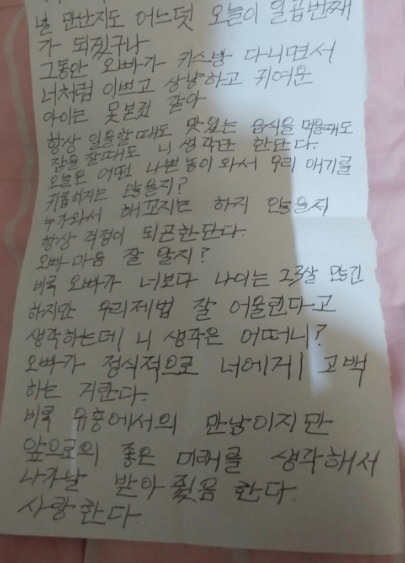 널 만난지도 어느덧 오늘이 일곱번째
가 되겠구나
그동안 오빠가 키스방 다니면서
너처럼 이쁘고 상냥하고 귀여운
아이는 못본것 같아
항상 일을할때도 맛있는 음식을 먹을때도
잠을 잘때도 니 생각만 한단다.
오늘은 어떤 나쁜 놈이 와서 우리 애기를
괴롭히지는 않을지?
누가와서 해꼬지는 하지 않을지
항상 걱정이 되곤한단다.
오빠 마음 잘 알지?
비록 오빠가 너보다 나이는 23살 많긴
하지만 우리제법 잘 어울린다고
생각하는데 니 생각은 어떠니?
오빠가 정식적으로 너에게 고백
하는 거란다.
비록 유흥에서의 만남이지만
앞으로의 좋은 미래를 생각해서
나가날 받아 줬음 한다.
사랑한다